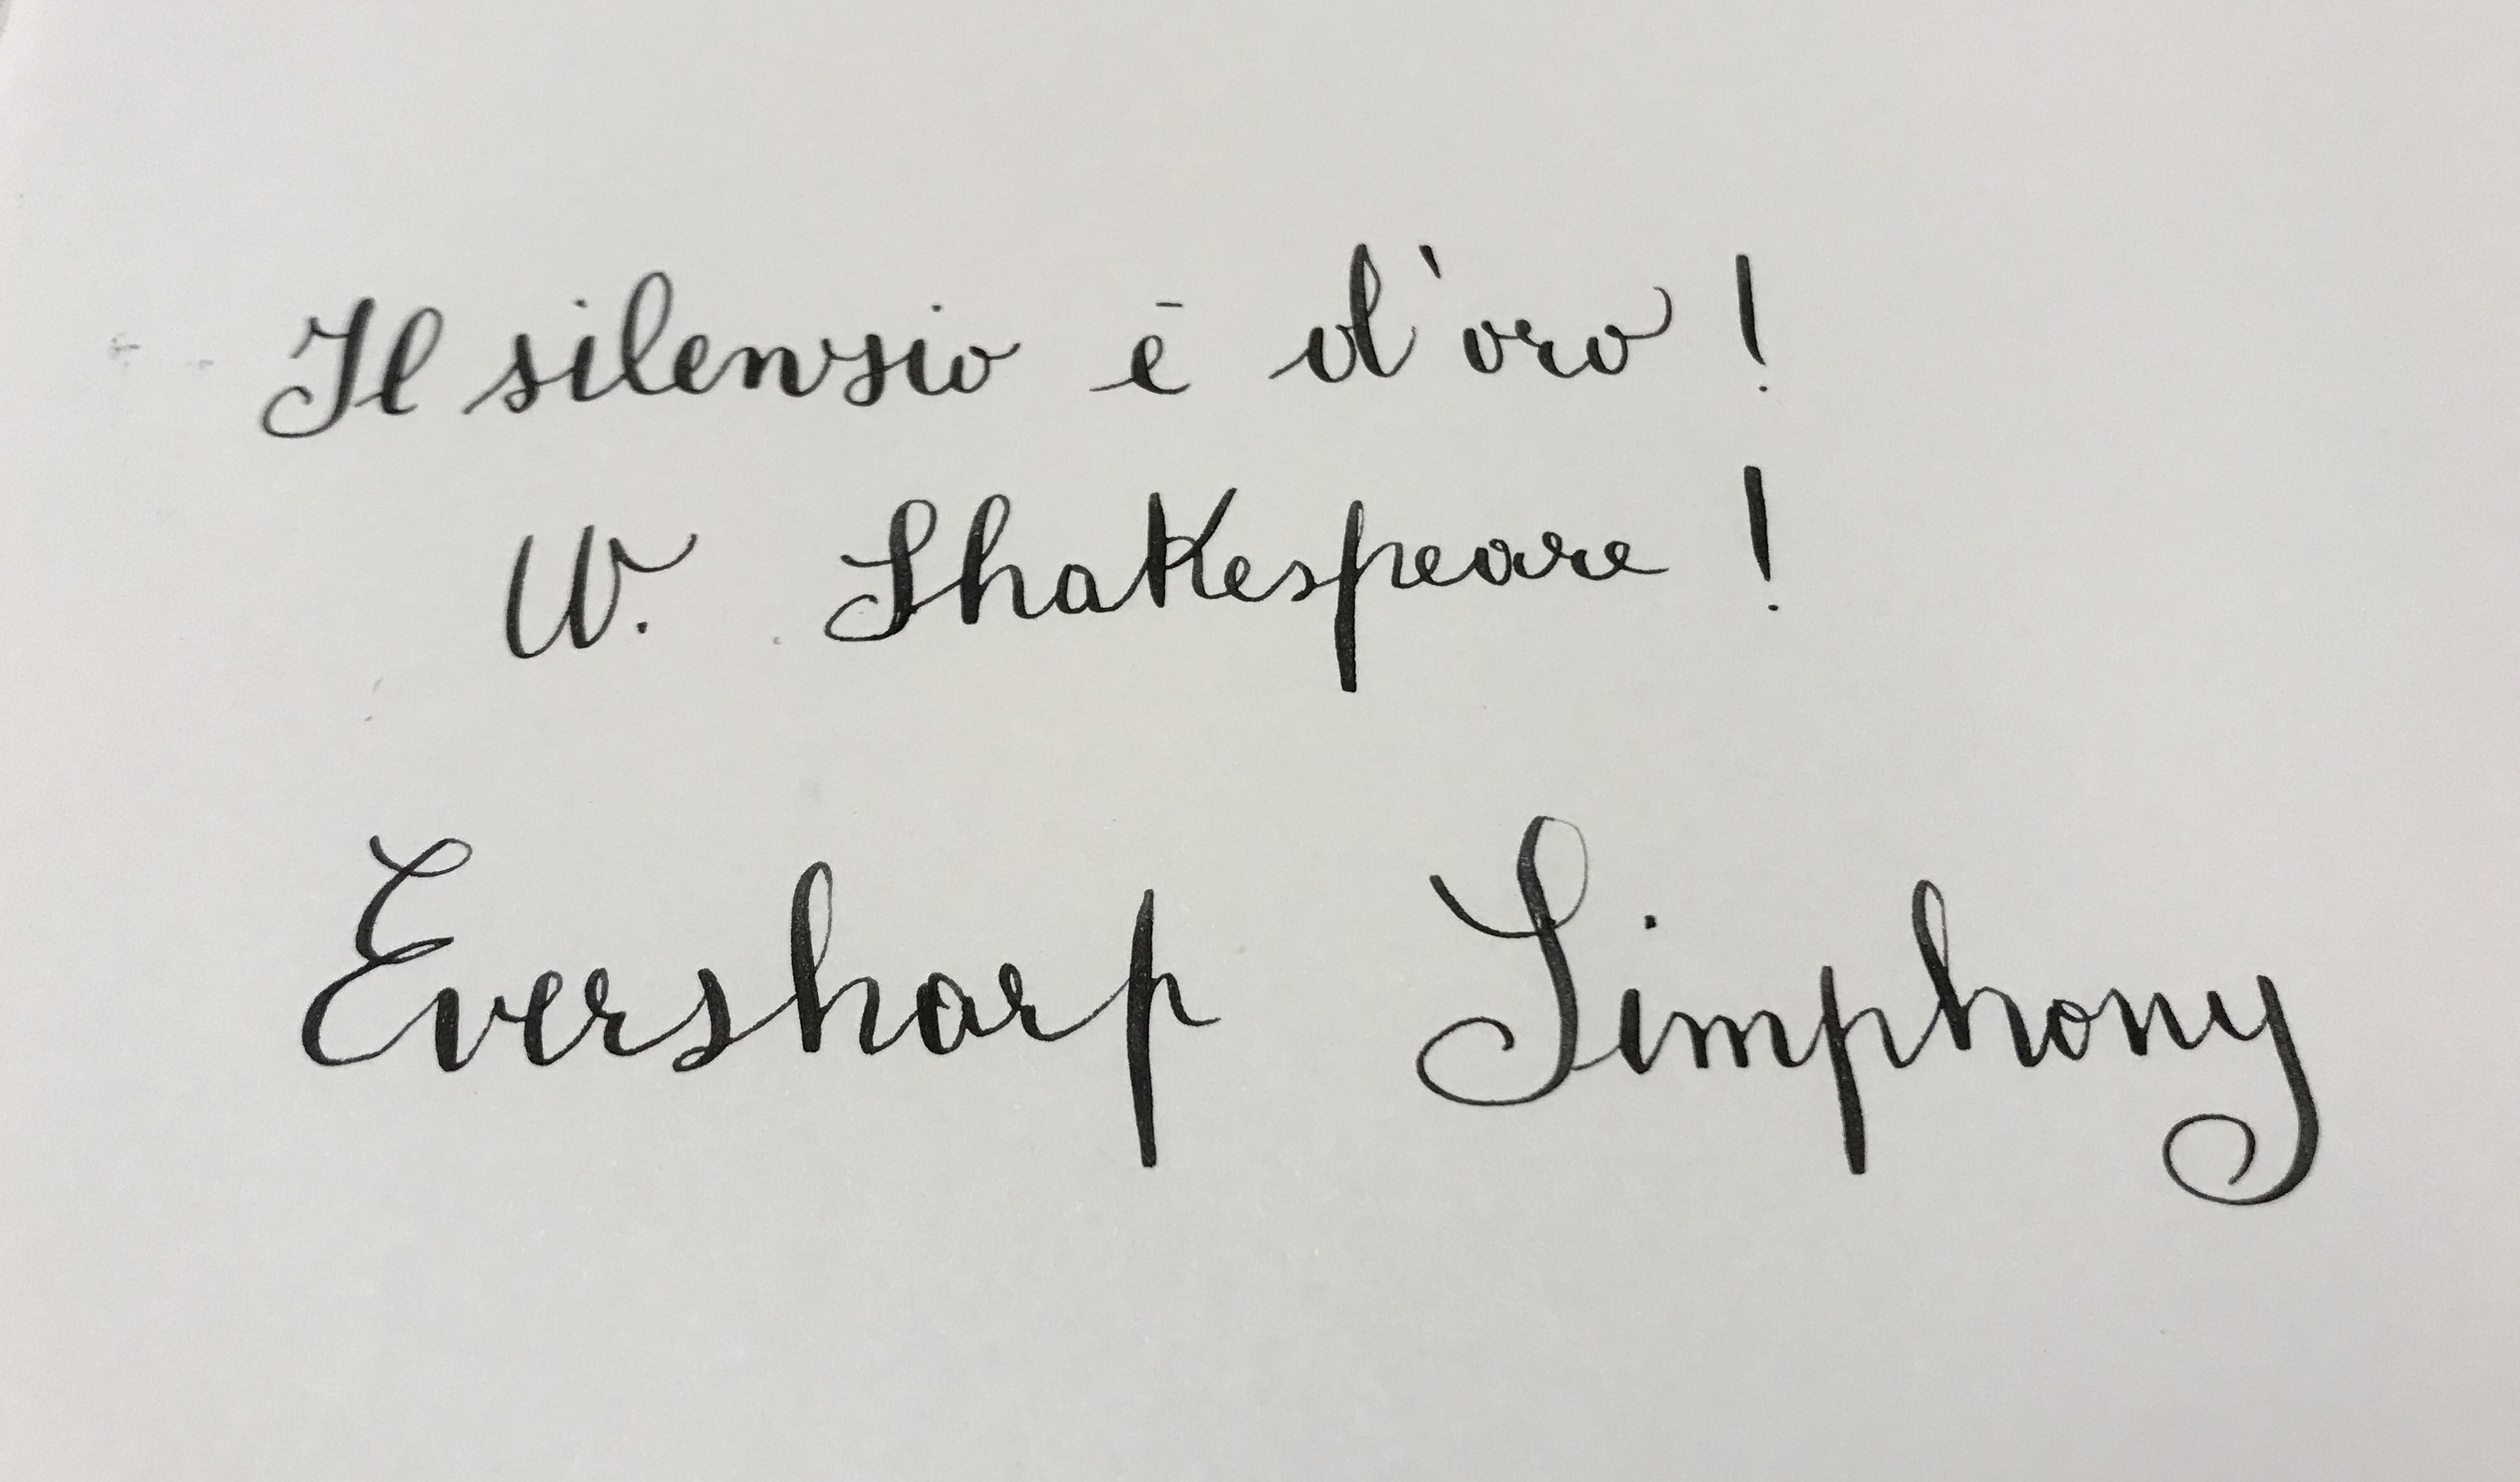 Il silensio ē d'oro !
W. Shakespeare !
Eversharp Simphony